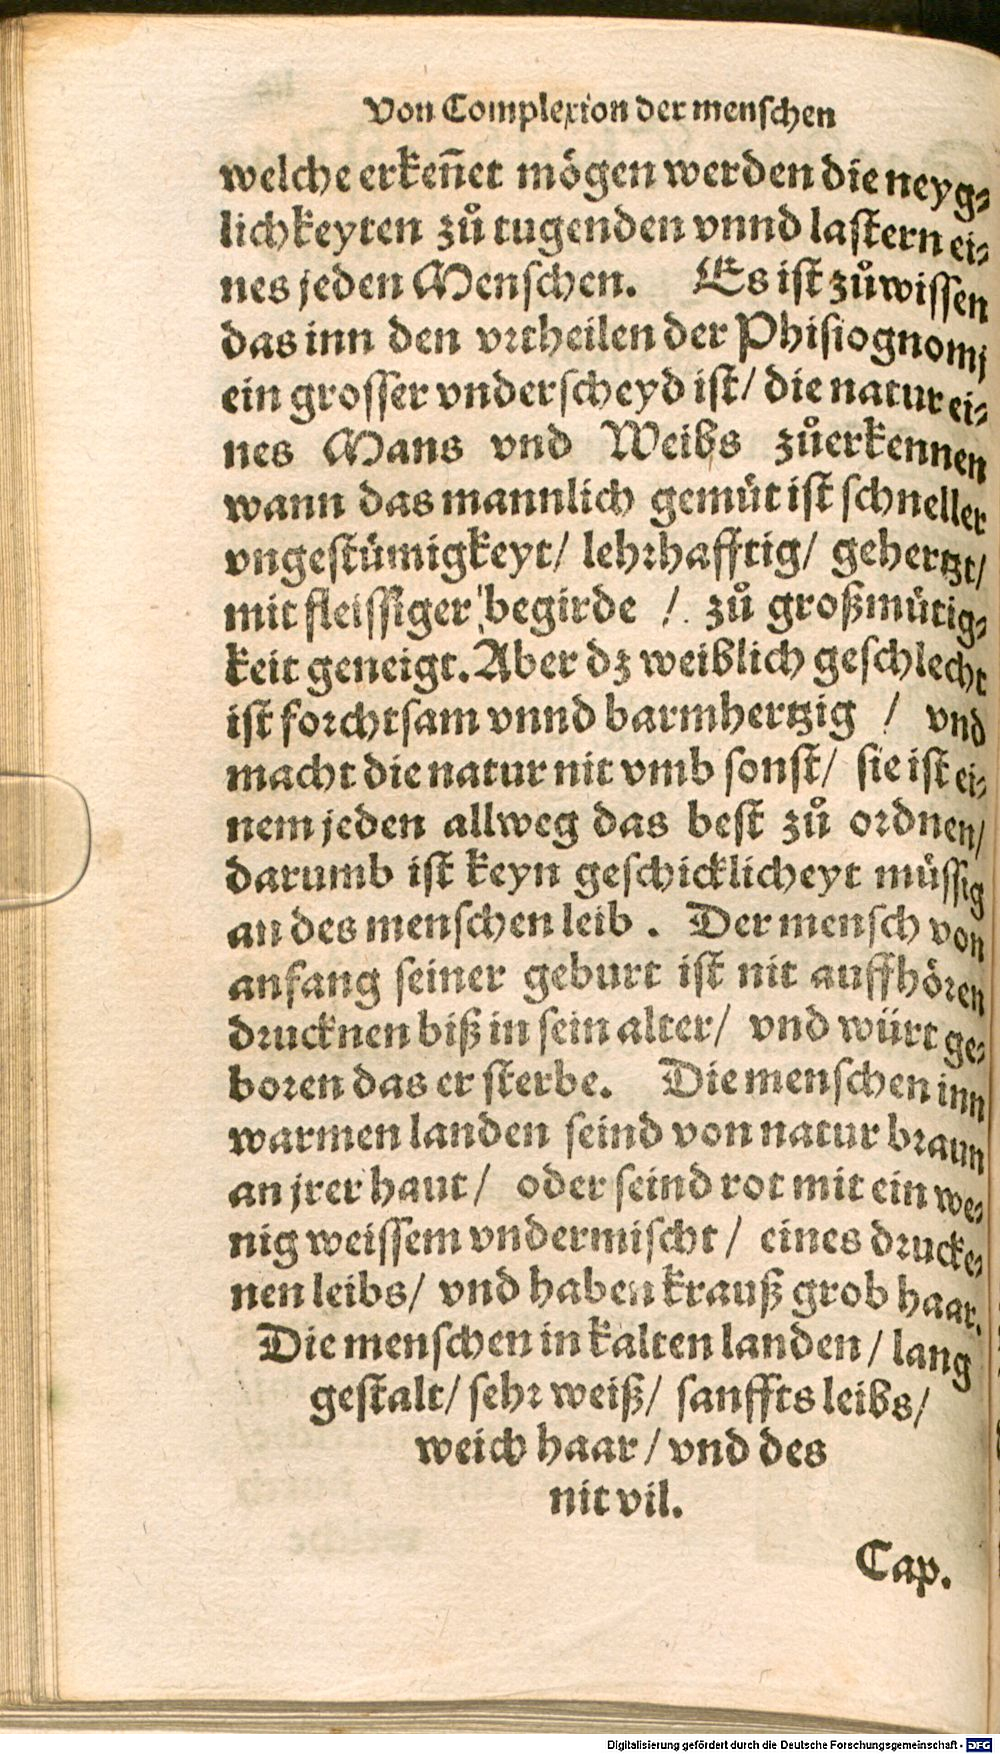 Von Complexion der menschen
welche erkeñet mögen werden die neyg⸗
lichkeyten zů tugenden vnnd lastern ei⸗
nes jeden Menschen. Es ist zůwissen
das inn den vrtheilen der Phisiognomj
ein grosser vnderscheyd ist/ die natur ei⸗
nes Mans vnd Weibs zůerkennen
wann das mannlich gemüt ist schneller
vngestümigkeyt/ lehrhafftig/ gehertzt/
mit fleissiger begirde /. zů großmütig⸗
keit geneigt. Aber dz weiblich geschlecht
ist forchtsam vnnd barmhertzig / vnd
macht die natur nit vmb sonst/ sie ist ei⸗
nem jeden allweg das best zů ordnen/
darumb ist keyn geschicklicheyt müssig
an des menschen leib . Der mensch von
anfang seiner geburt ist nit auffhören
drucknen biß in sein alter/ vnd würt ge⸗
boren das er sterbe. Die menschen inn
warmen landen seind von natur braun
an jrer haut/ oder seind rot mit ein we⸗
nig weissem vndermischt/ eines drucke⸗
nen leibs/ vnd haben krauß grob haar.
Die menschen in kalten landen/ lang
gestalt/ sehr weiß/ sanffts leibs/
weich haar/ vnd des
nit vil.
Cap.
Digitalisierung gefördert durch die Deutsche Forschungsgemeinschaft - DFG